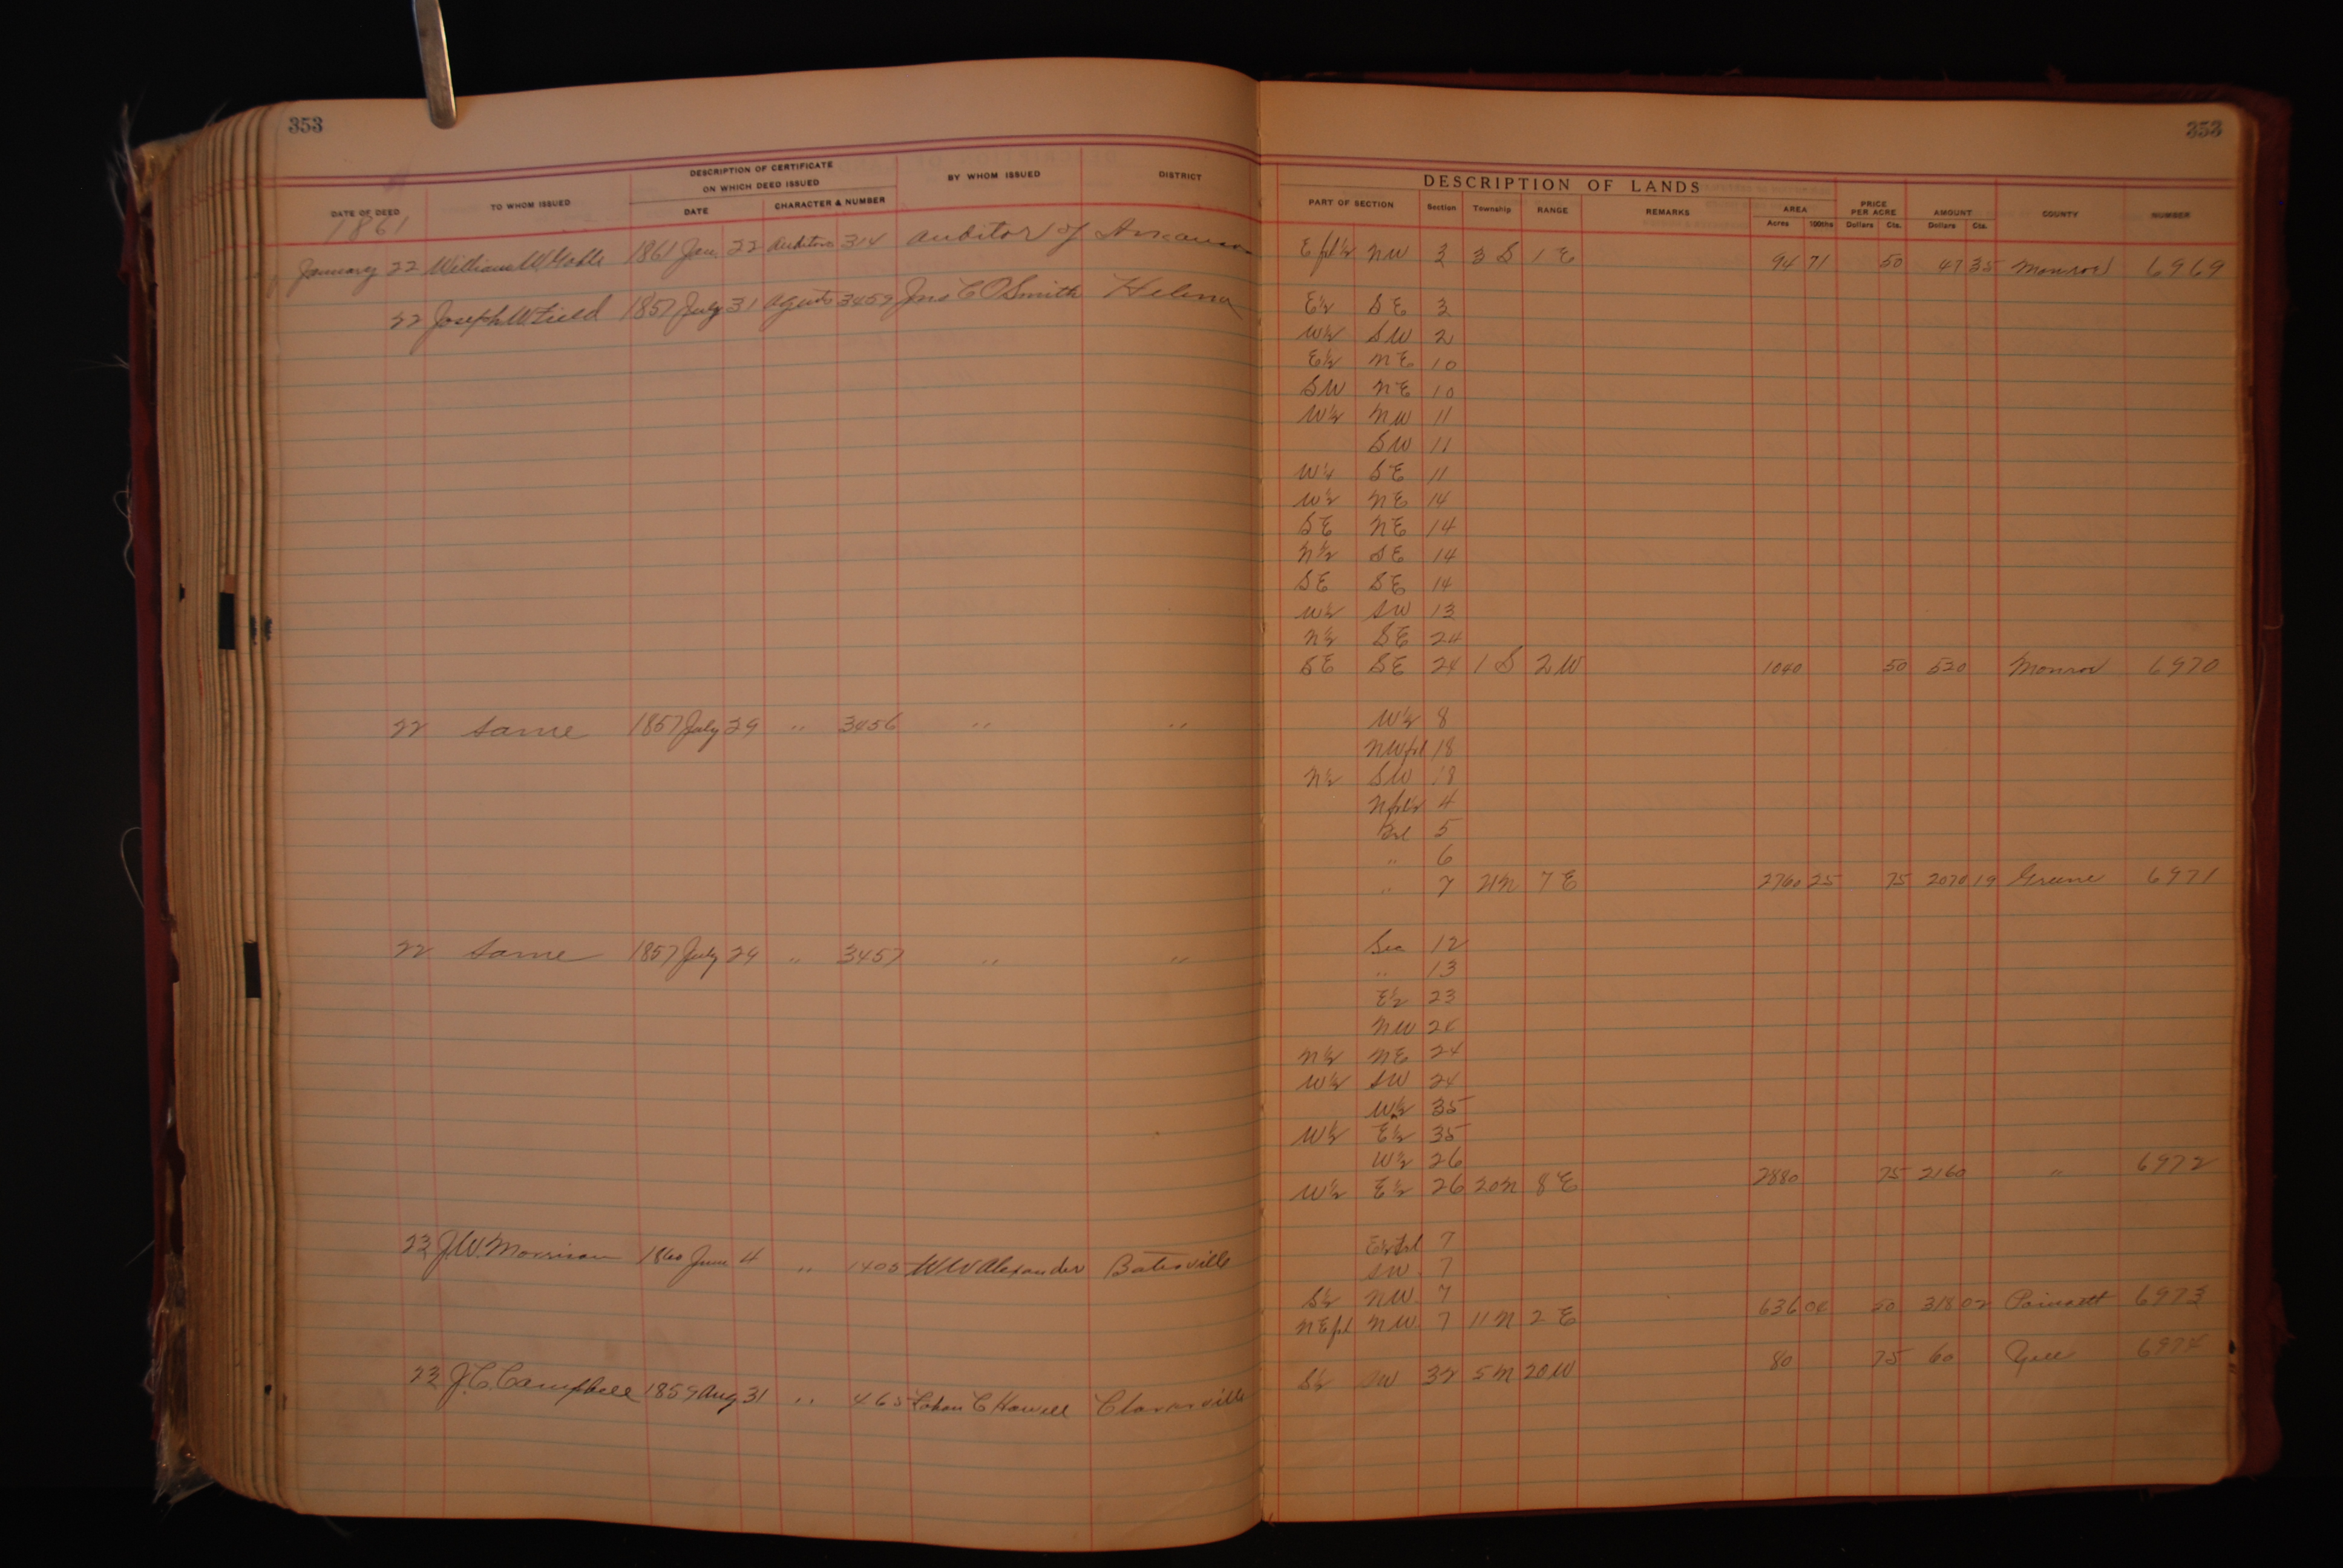 353
353
DESCRIPTION OF CERTIFICATE
ON WHICH DEED ISSUED
DATE OF DEED TO WHOM ISSUED DATE CHARACTER & NUMBER BY WHOM ISSUED DISTRICT
DESCRIPTION OF LANDS
PART OF SECTION Section Township RANGE REMARKS AREA Acres 100ths PRICE PER ACRE Dollars Cts. AMOUNT Dollars Cts. COUNTY NUMBER
1861
January 22 William W. 1861 Jan. 22 Auditors 314 Auditor of Arkansas E frl ½ NW 3 3 S 1 E 94 71 50 47 35 Monroe 6969
22 Joseph W. Field 1857 July 31 Agents 3459 Jno C O Smith Helena E½ SE 3
W½ SW 2
E½ NE 10
SW NE 10
W½ NW 11
SW 11
W½ SE 11
W½ NE 14
SE NE 14
N½ SE 14
SE SE 14
W½ SW 13
N½ SE 24
SE SE 24 1 S 2 W 1040 50 520 Monroe 6970
22 Same 1857 July 29 " 3456 " " W½ 8
NW frl 18
N½ SW 18
N frl ½ 4
Frl 5
" 6
" 7 21 N 7 E 2760 25 75 2070 19 Greene 6971
22 Same 1857 July 29 " 3457 " " Sec 12
" 13
E½ 23
NW 24
N½ NE 24
W½ SW 24
W½ 35
W½ E½ 35
W½ 26
W½ E½ 26 20 N 8 E 2880 75 2160 " 6972
23 J.W. Morrison 1860 June 4 " 1405 W W Alexander Batesville E½ frl 7
SW 7
S½ NW. 7
NE frl NW. 7 11 N 2 E 636 04 50 318 02 Poinsett 6973
23 J.C. Campbell 1859 Aug 31 " 465 C Howell Clarksville S½ SW 32 5 N 20 W 80 75 60 Yell 6974